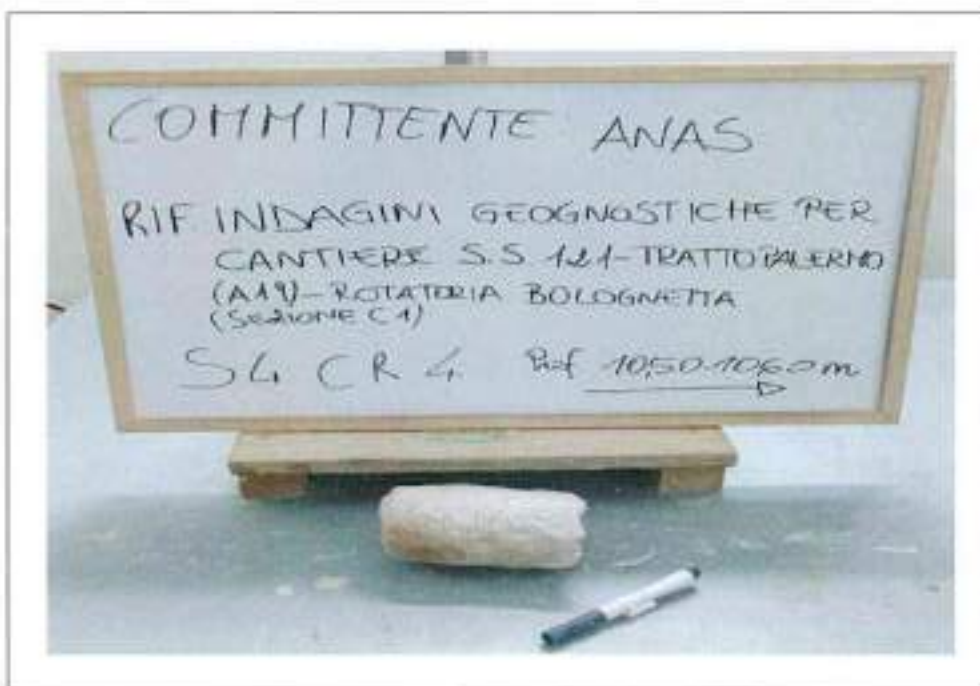 COMMITTENTE ANAS
RIF INDAGINI GEOGNOSTICHE PER
CANTIERE S.S 121-TRATTO PALERMO
(A19)-ROTATORIA BOLOGNETTA
(SEZIONE C1)
S4 CR4 Prof 10,50-10,60 m